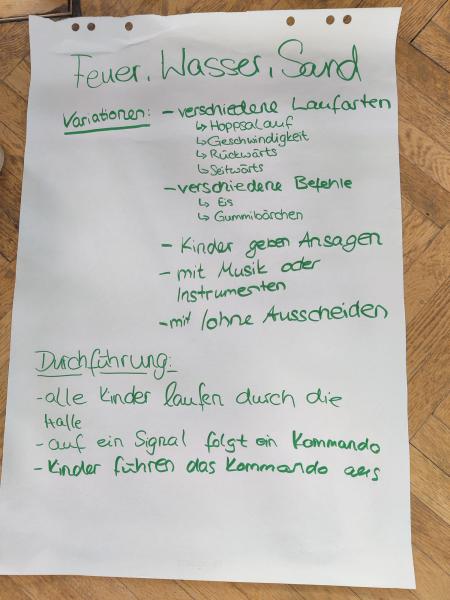 Feuer, Wasser, Sand
Variationen: - verschiedene Laufarten
↳ Hoppsalauf
↳ Geschwindigkeit
↳ Rückwärts
↳ Seitwärts
- verschiedene Befehle
↳ Eis
↳ Gummibärchen
- Kinder geben Ansagen
- mit Musik oder
Instrumenten
- mit /ohne Ausscheiden
Durchführung:
- alle Kinder laufen durch die
Halle
- auf ein Signal folgt ein Kommando
- Kinder führen das Kommando aus